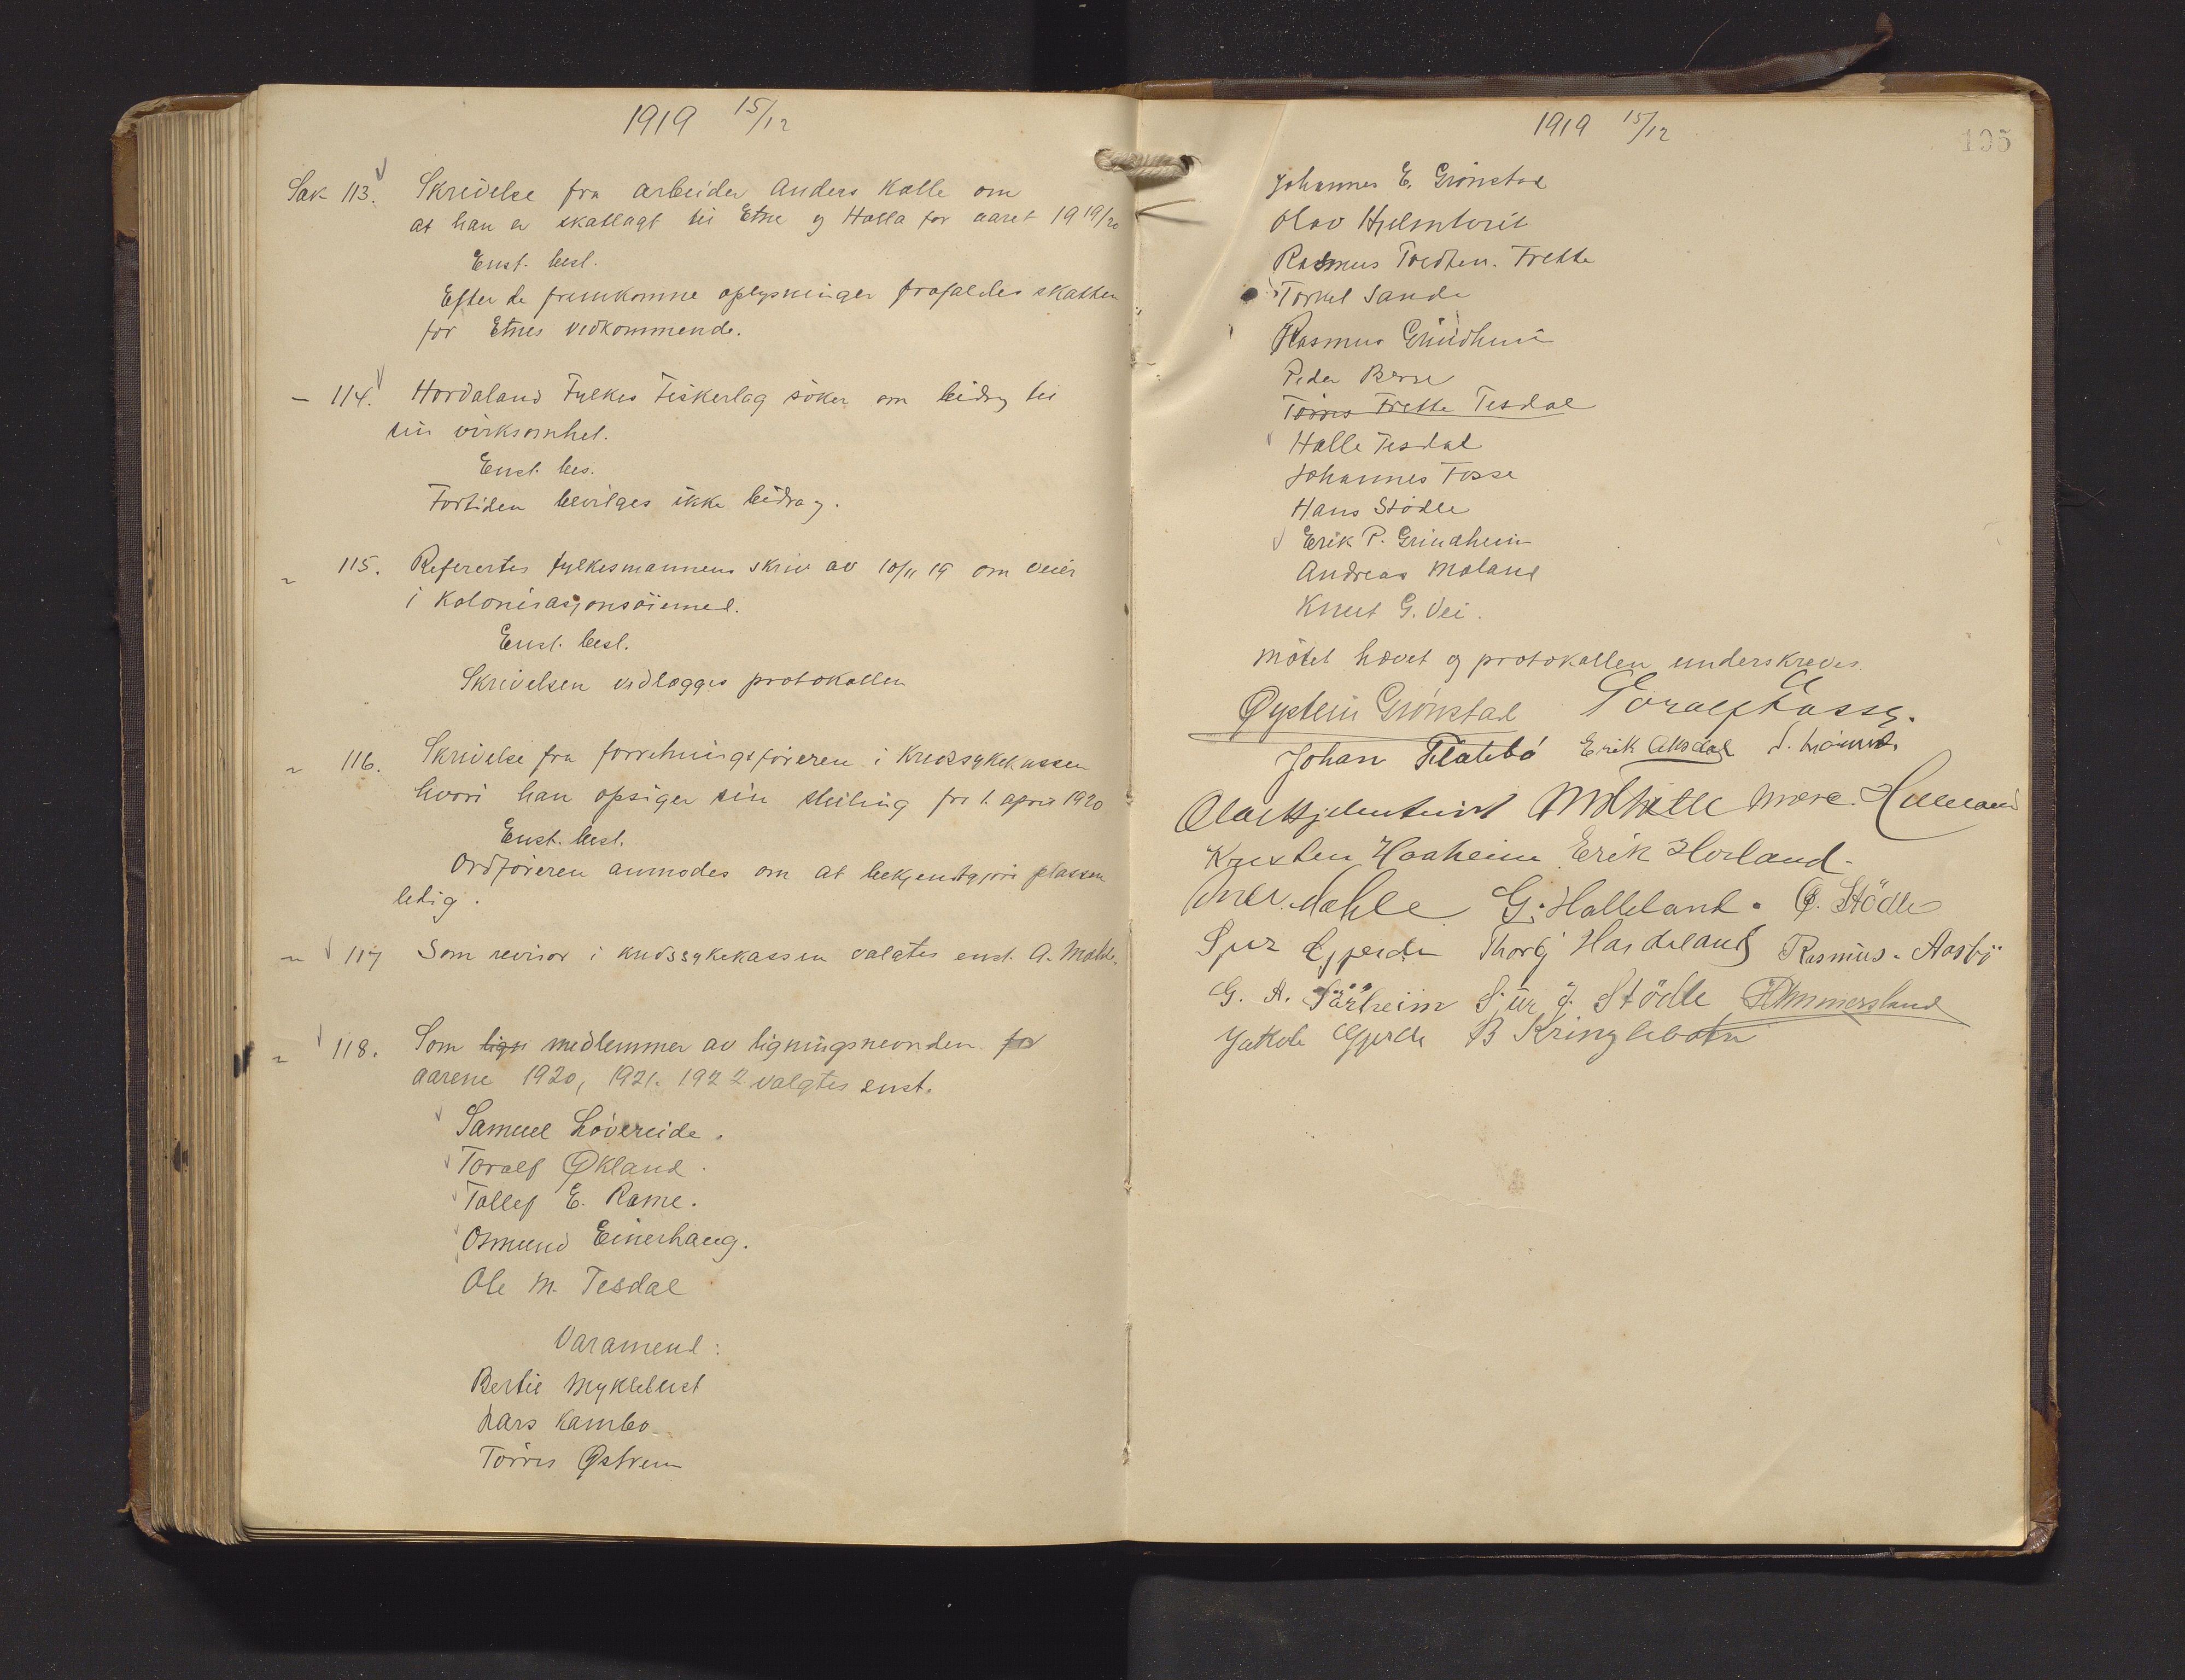 1919 15/12
Sak 113. Skrivelse fra arbeider Anders Kalle om
at han er skatlagt til Etne og Halla for aaret 1919/20
Enst. besl.
Efter de fremkomne oplysninger frafaldes skatten
for Etnes vedkommende.
— 114. Hordaland Fylkes Fiskerlag söker om bidrag til
sin virksomhet.
Enst. bes.
Fortiden bevilges ikke bidrag.
" 115. Refertes fylkesmannens skriv av 10/11 19 om veier
i Kolonisasjonsöiemed.
Enst. besl.
Skrivelsen vedlægges protokollen
" 116. Skrivelse fra forretningsföreren i Kredssykekassen
hvori han opsiger sin stilling fra 1. april 1920
Enst. besl.
Ordföreren anmodes om at bekjentgjöre plassen
ledig.
" 117 Som revisor i kredssykekassen valgtes enst. A. Mæhle.
" 118. Som medlemmer av ligningsnevnden for
aarene 1920, 1921. 1922 valgtes enst.
Samuel Lövereide.
Toralf Økland.
Tollef E. Rame.
Osmund Einerhaug.
Ole M. Tesdal
Varamend:
Bertil Myklebust
Lars Kambo
Törres Østrem
1919 15/12
105
Johannes E. Grönstad
Olav Hjelmtveit
Rasmus Frette
Torkel Sande
Rasmus Grindheim
Peder Børse
Törres Frette Tesdal
Halle Tesdal
Johannes Fosse
Hans Stödle
Erik P. Grindheim
Andreas Møland
Knut G. Vei.
Mötet hævet og protokollen underskreves.
Øystein Grönstad Toralf
Johan Flatebö Erik Aksdal
Olav Hjelmtveit
Kristen Haaheim Erik Horland.
Mæhle G. Halleland. Stödle
Sjur Gjerde Thorbj Hardeland Rasmus. Aasbö
G. A. Särheim Sjur J. Stödle Ømmersland
Jakob Gjerde B Kringlebotn